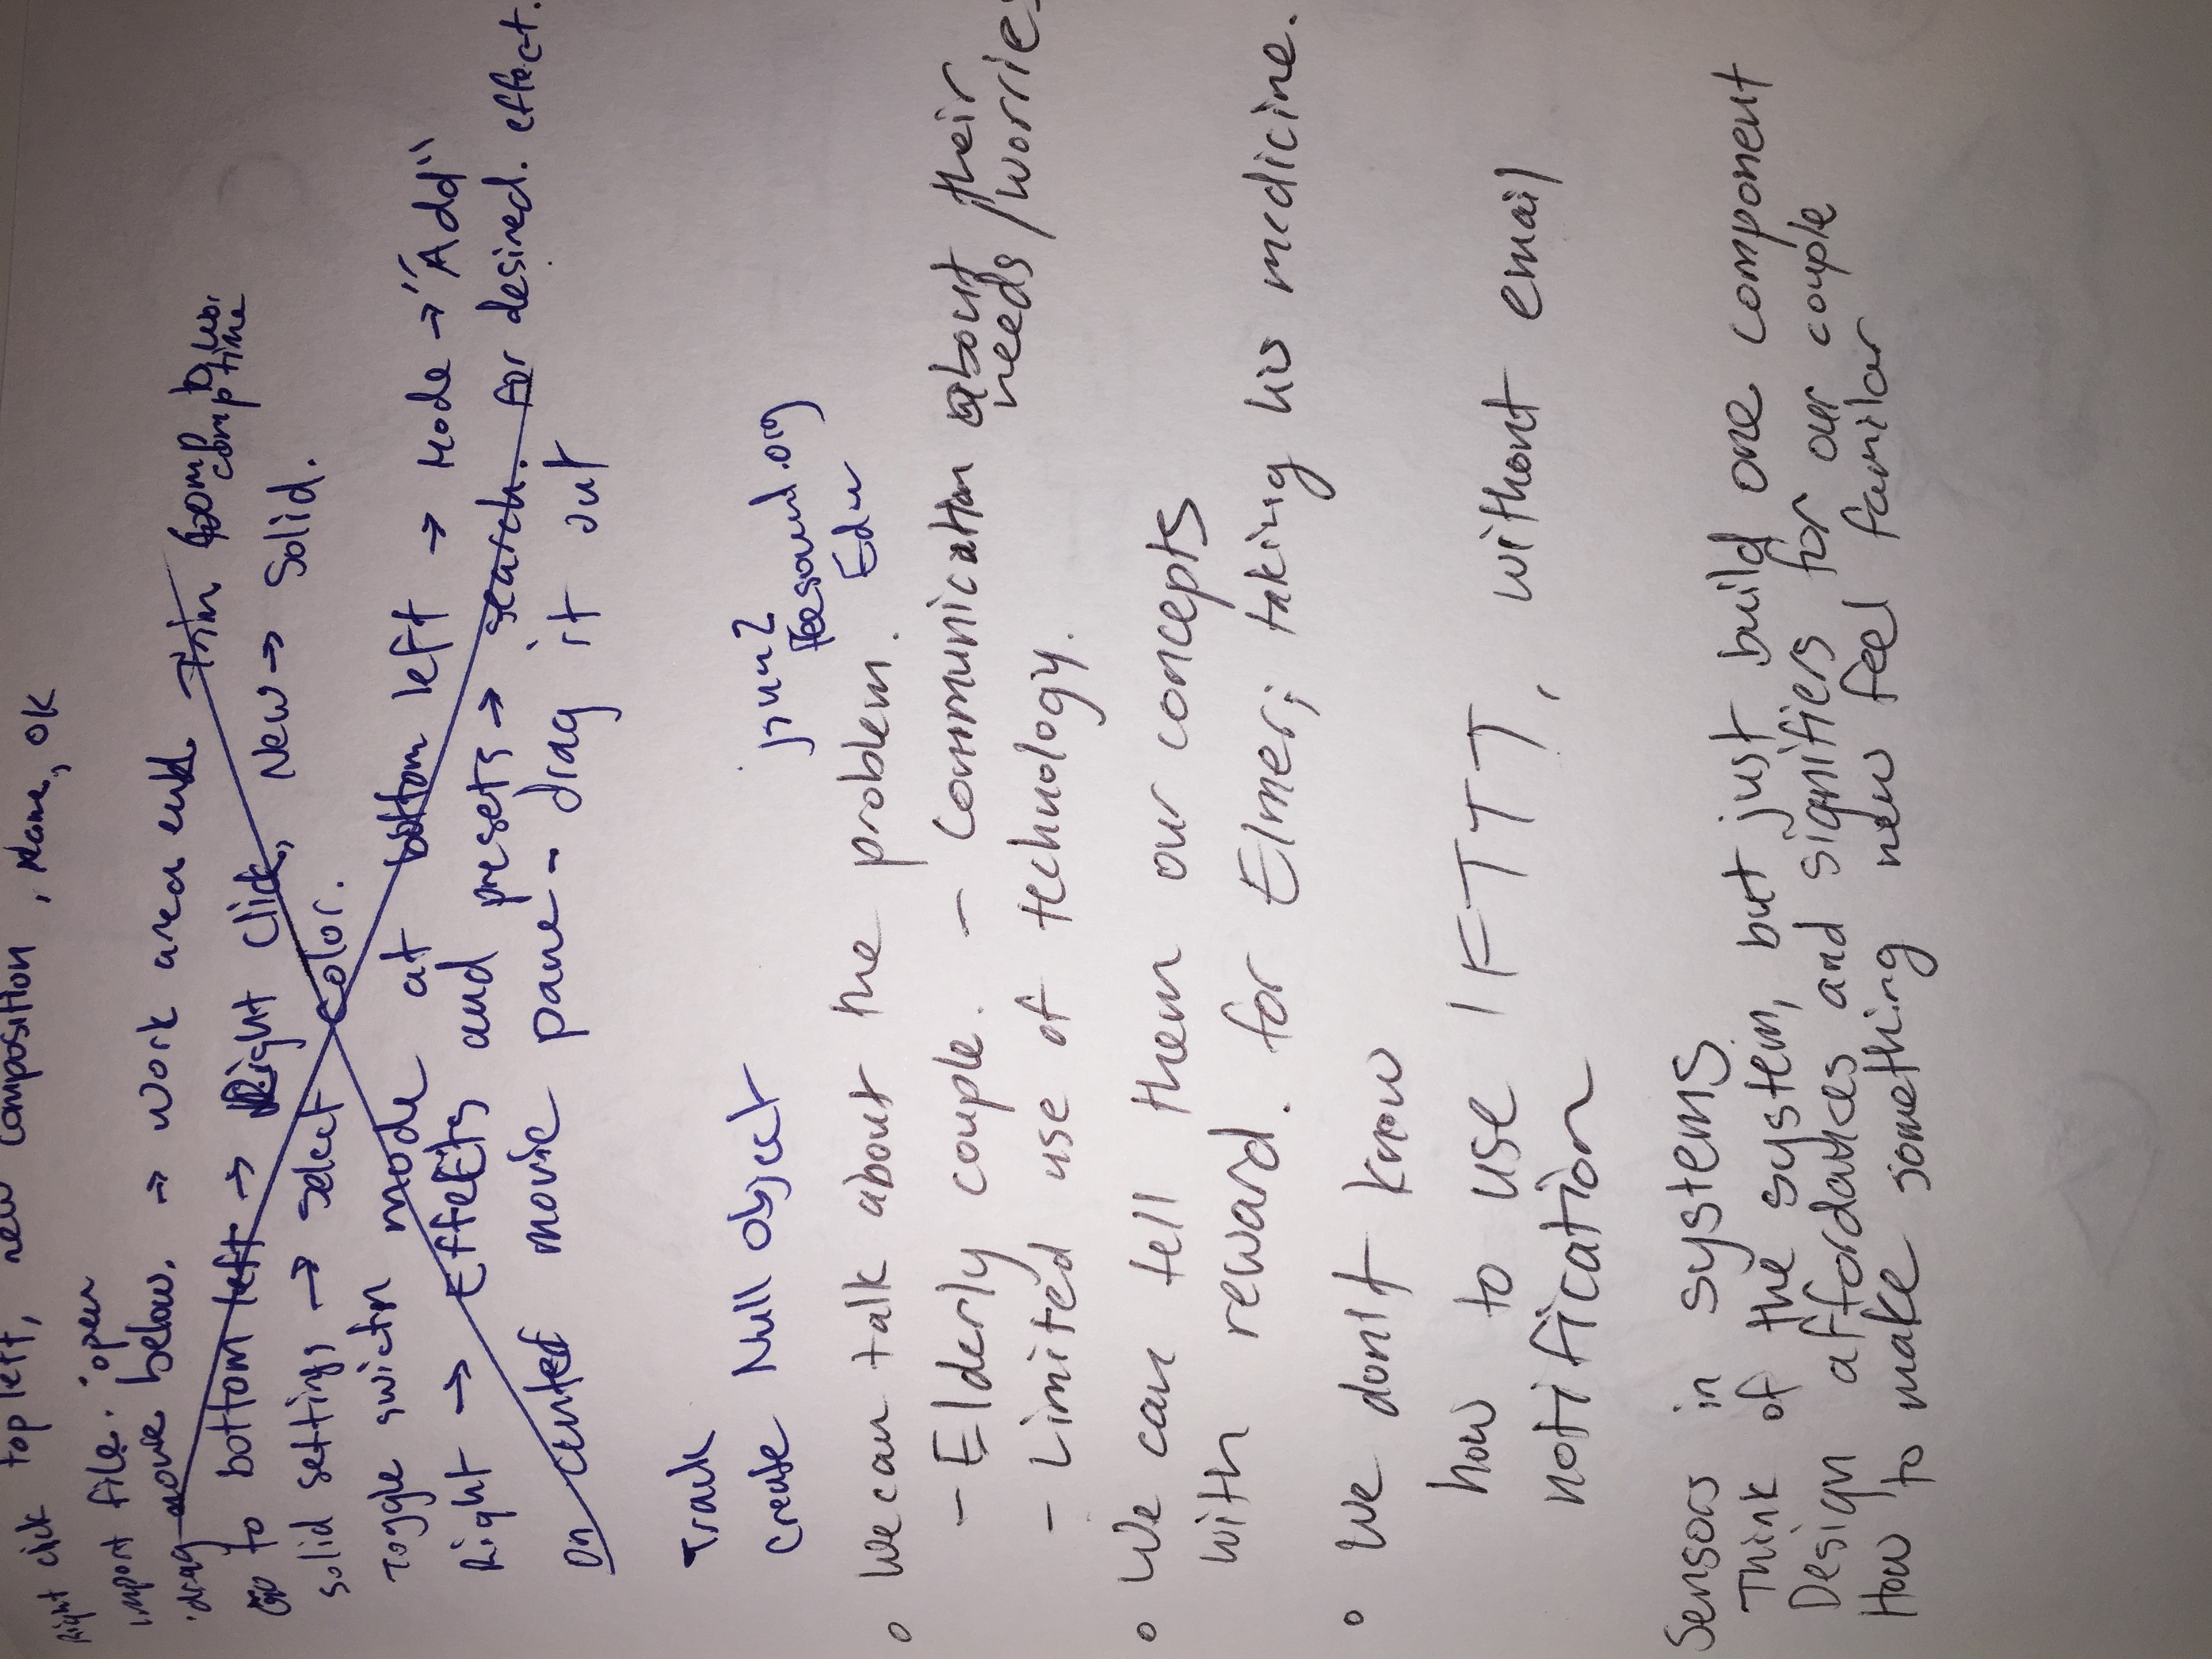 Right click top left, new composition, Name, OK
import file. open
drag movie below. → work area end. Trim comp to
comp time
Go to bottom left → Right click, New → Solid.
solid settings → select color.
Toggle swictn mode at bottom left → Mode → "Add"
Right → Effects and presets → search. for desired. effect.
On center movie pane - drag it out
Track
Create Null Object
freesound.org
Edu
o We can talk about the problem.
- Elderly couple. - Communication about their
needs/worries
- Limited use of technology.
o We can tell them our concepts
with reward. for Elmer; taking his medicine.
o We don't know
how to use IFTTT, without email
notification
Sensors in systems
Think of the system, but just build one component
Design affordances and signifiers for our couple
How to make something new feel familar